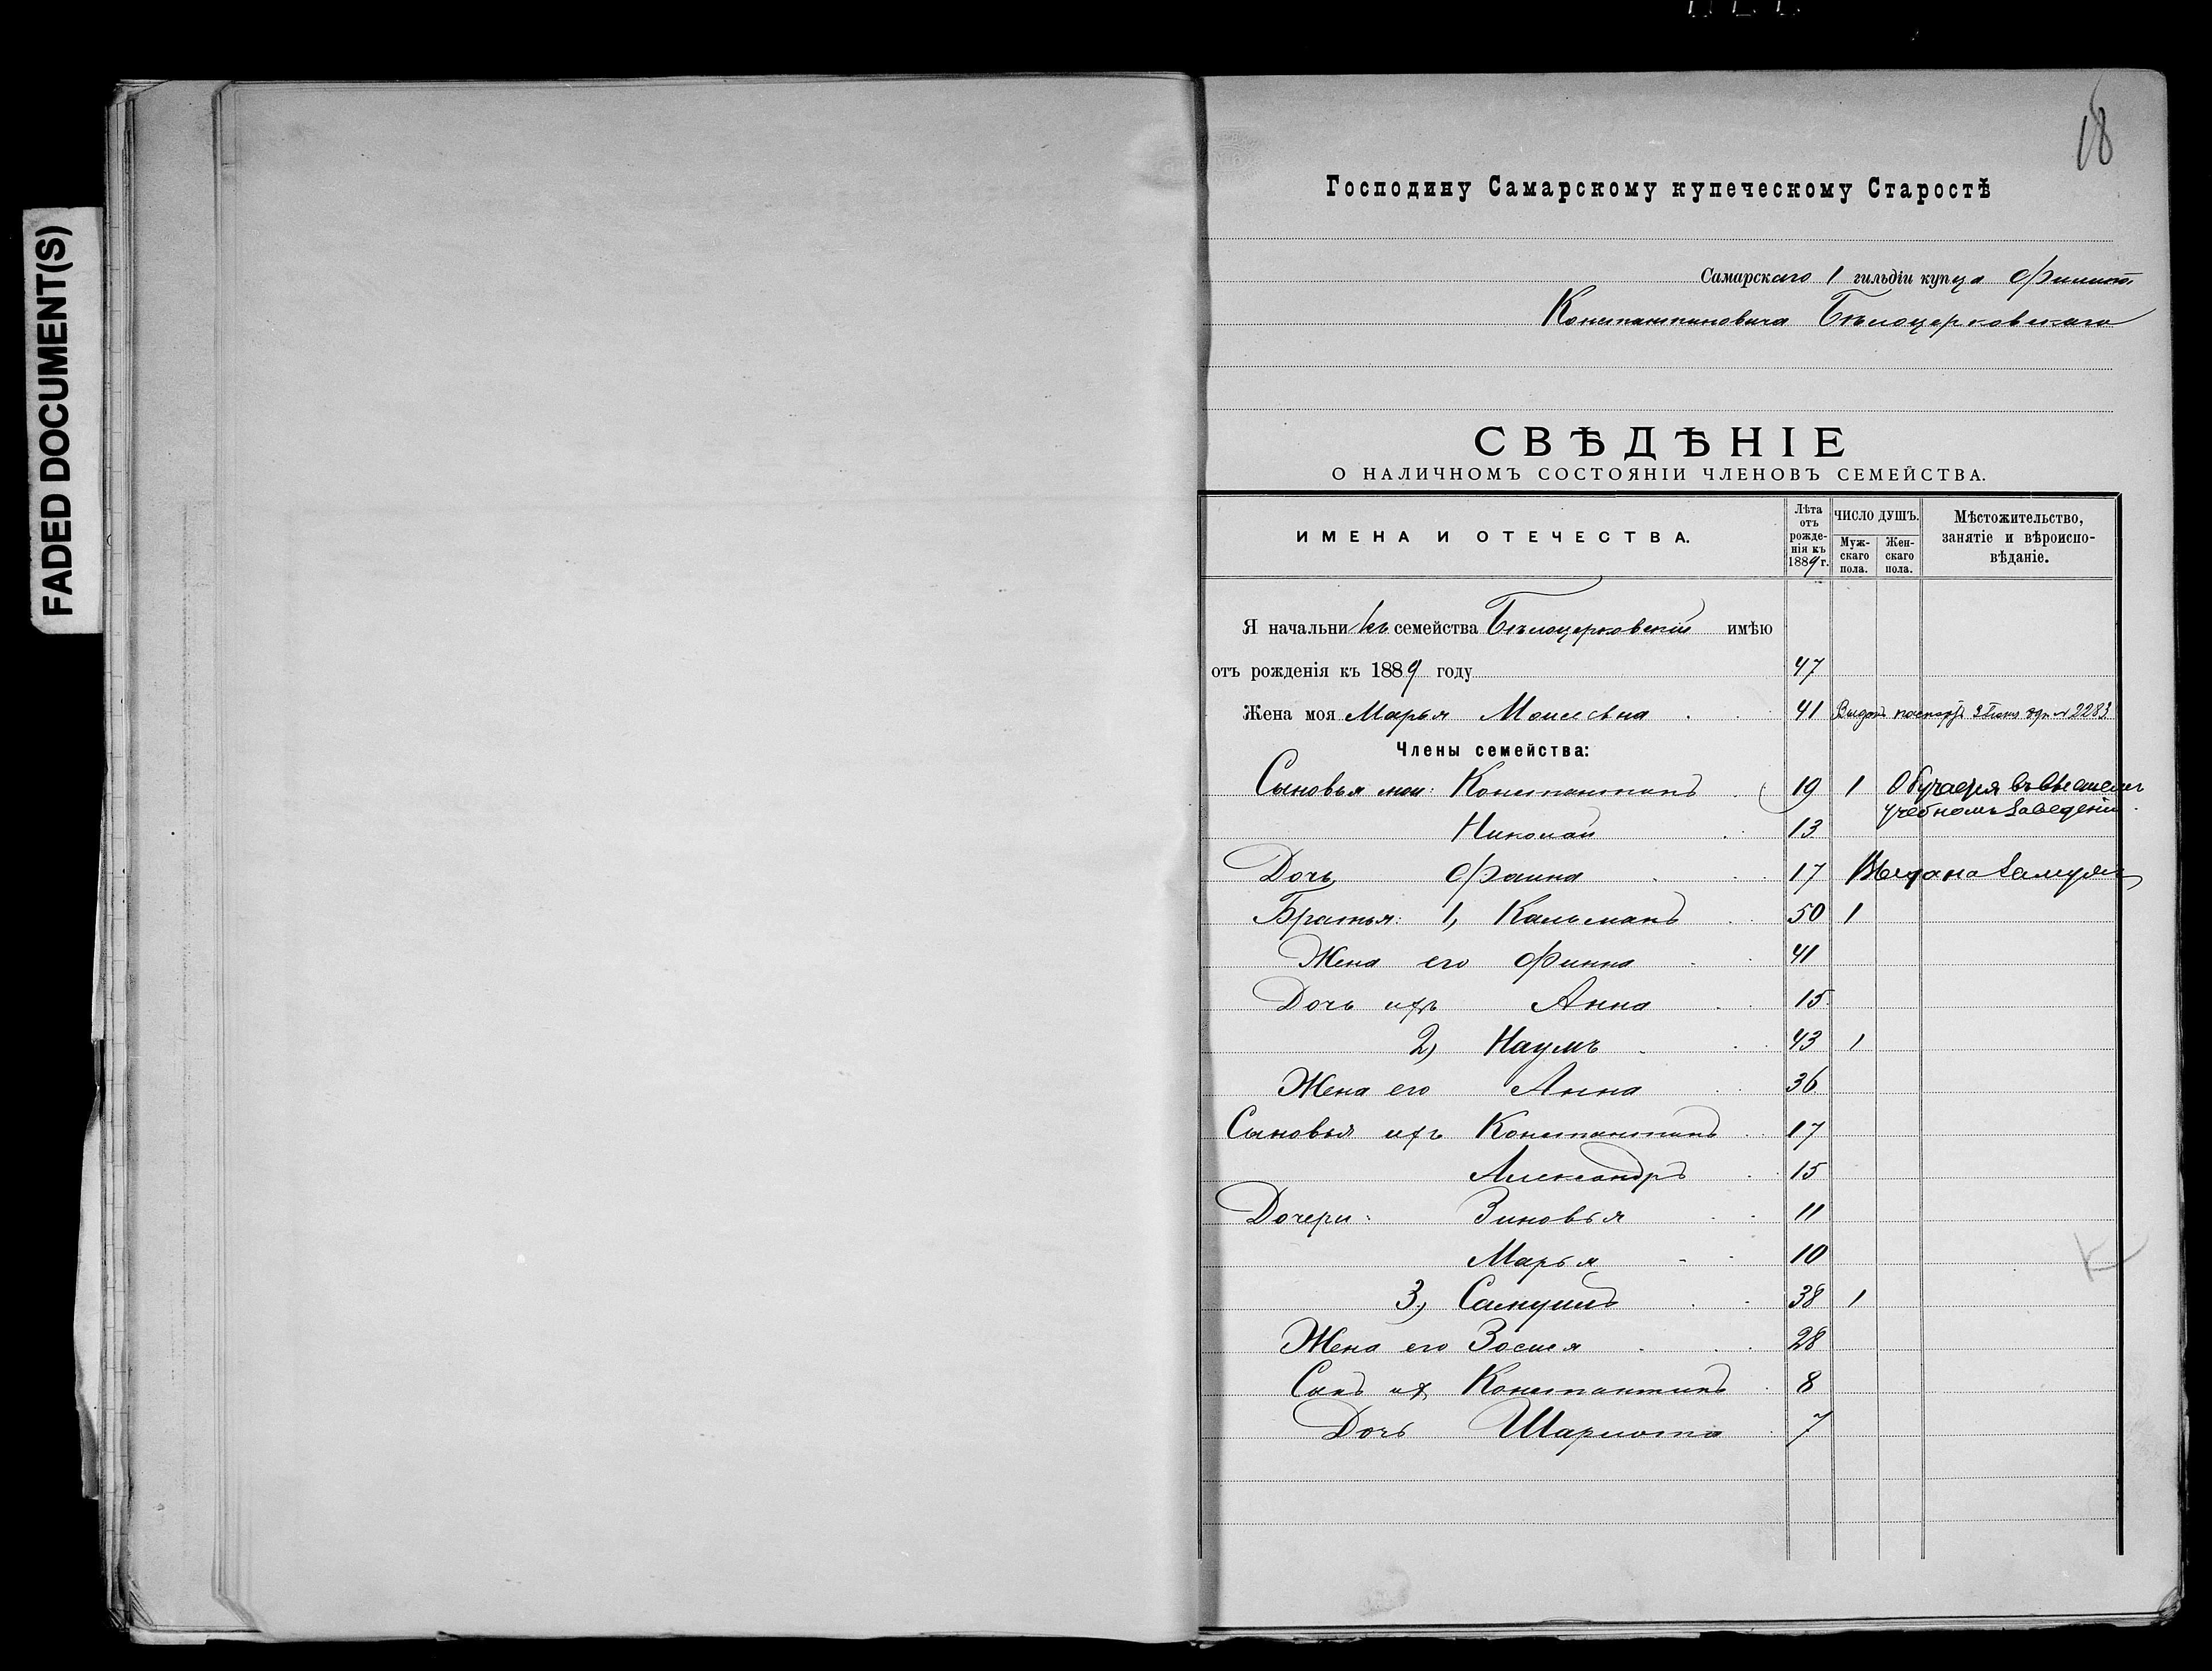 FADED DOCUMENT(S)
18
Господину Самарскому купеческому Старостѣ
Самарскаго 1 гильдіи купца Филиппа
Константиновича Бѣлоцерковскаго
СВѢДѢНІЕ
О НАЛИЧНОМЪ СОСТОЯНІИ ЧЛЕНОВЪ СЕМЕЙСТВА.
ИМЕНА И ОТЕЧЕСТВА.
Лѣта отъ рожденія къ 1889 г.
ЧИСЛО ДУШЪ.
Мужскаго пола.
Женскаго пола.
Мѣстожительство, занятіе и вѣроисповѣданіе.
Я начальникъ семейства Бѣлоцерковскій имѣю
отъ рожденія къ 1889 году 47
Жена моя Марья Моисѣевна 41 Выданъ паспортъ 2283
Члены семейства:
Сыновья мои: Константинъ 19 1 Обучается въ высшемъ
учебномъ заведеніи
Николай 13
Дочь Фаина 17 Выдана замужъ
Братья: 1, Кальманъ 50 1
Жена его Финна 41
Дочь ихъ Анна 15
2, Наумъ 43 1
Жена его Анна 36
Сыновья ихъ Константинъ 17
Александръ 15
Дочери: Зиновья 11
Марья 10
3, Самуилъ 38 1
Жена его 28
Сынъ их Константинъ 8
Дочь Шарлота 7